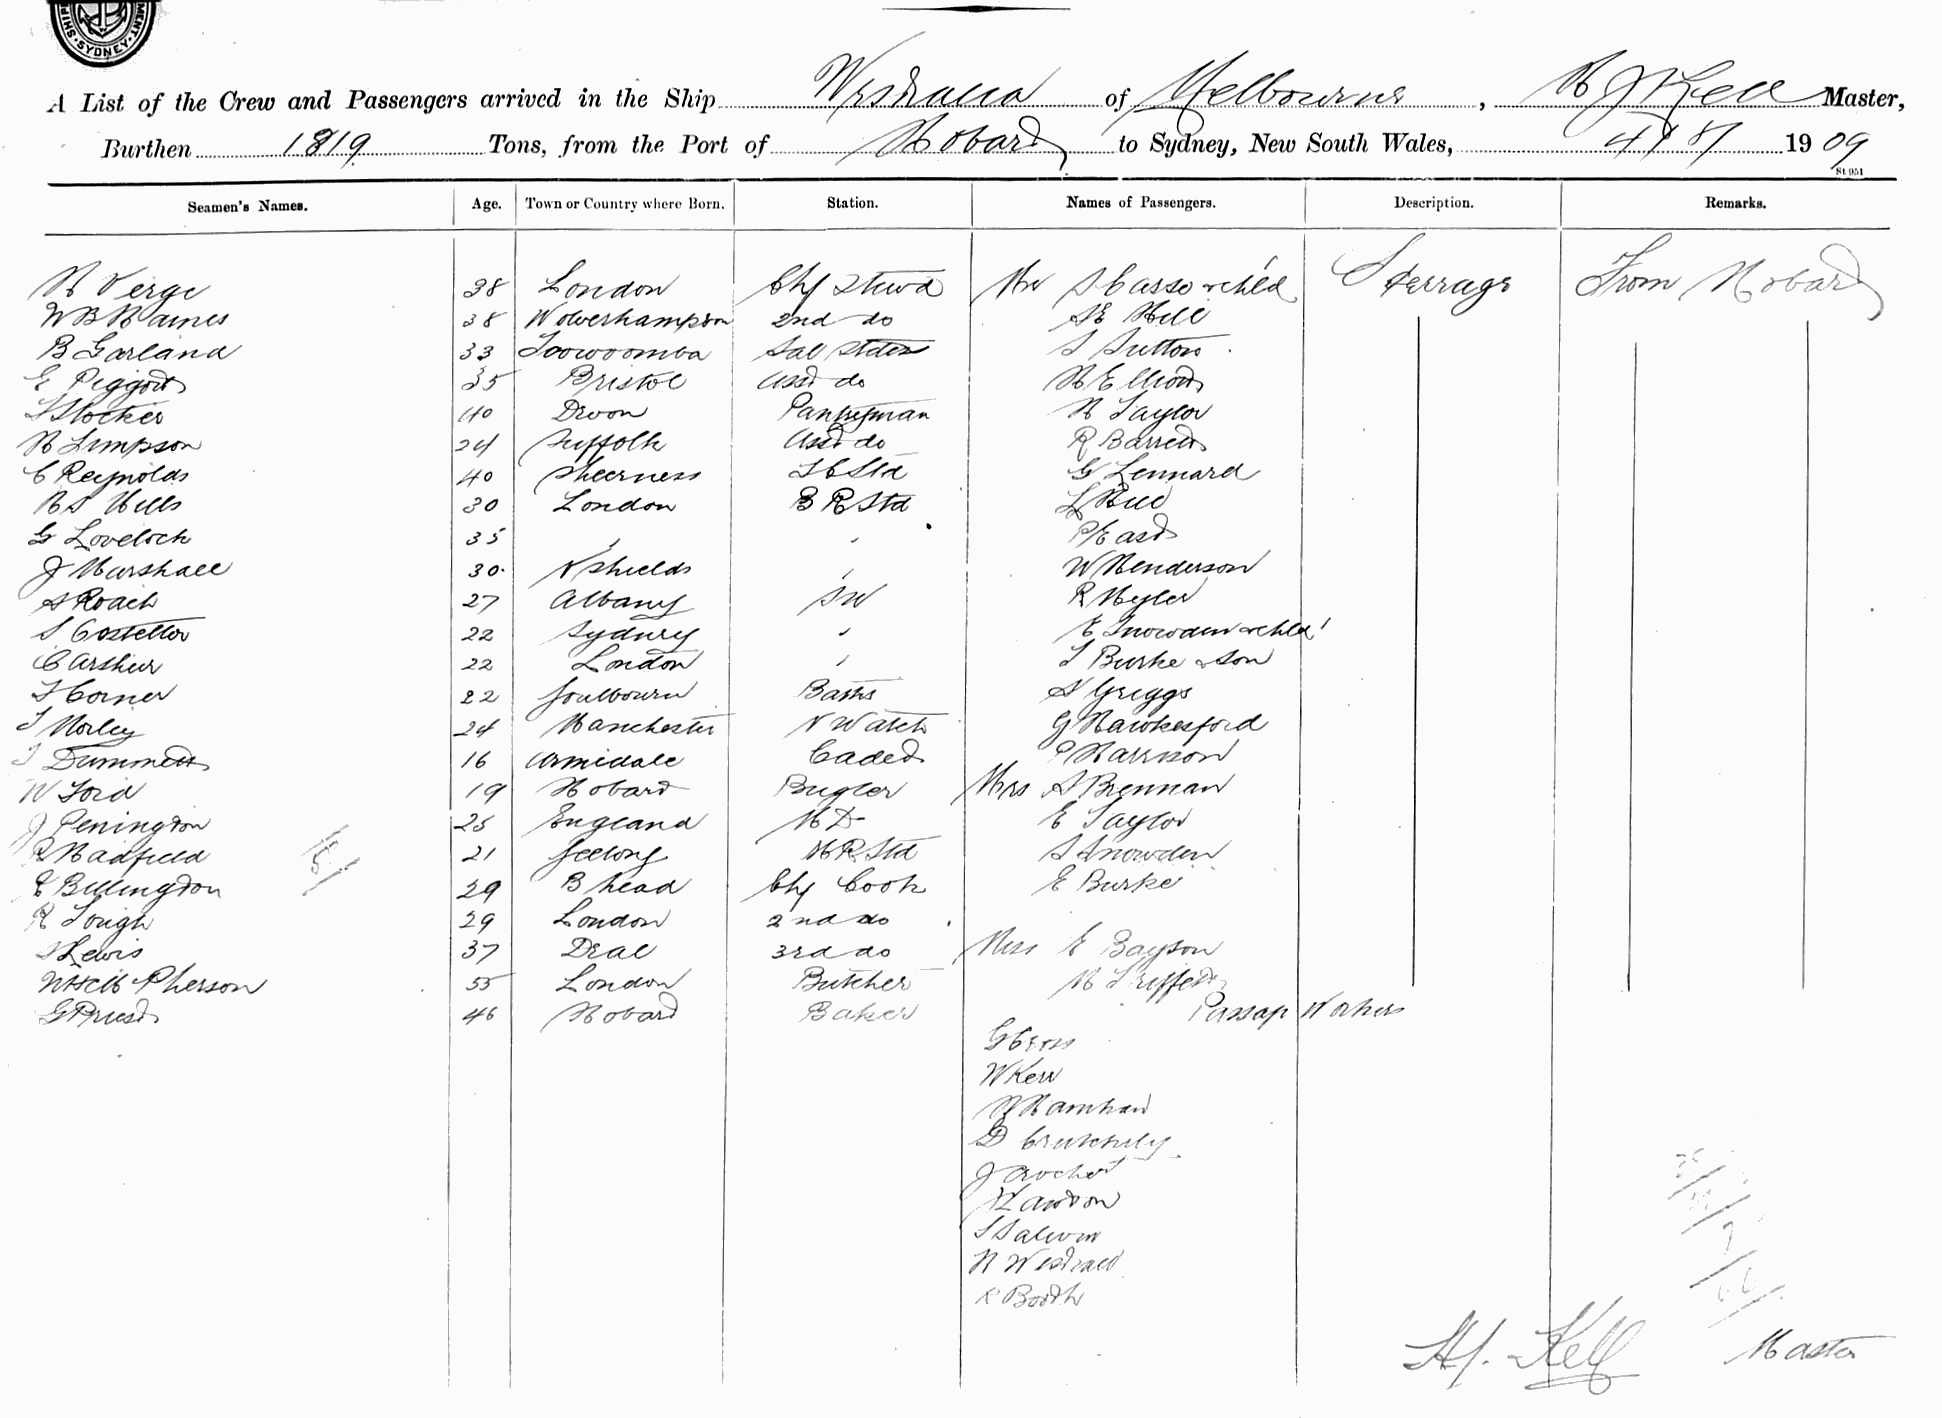 SYDNEY
A List of the Crew and Passengers arrived in the Ship Westralia of Melbourne, H J Kell Master,
Burthen 1819 Tons, from the Port of Hobart to Sydney, New South Wales, 4/8/ 1909
St 951
Seamen's Names. Age. Town or Country where Born. Station. Names of Passengers. Description. Remarks.
H Verge 38 London Chf Stewd Mr Casso & chld Steerage From Hobart
W B Haines 38 Wolverhampton 2nd do Hill
B Garland 33 Toowoomba Sal S Sutton
E Piggott 35 Bristol Asst do H Elliott
Stocker 40 Devon Pantryman H Taylor
H Simpson 24 Suffolk Asst do R Barrett
C Reynolds 40 Sheerness Std G Lennard
Hills 30 London B R Std L Hill
G Lovelock 35 " " P East
J Marshall 30 N Shields " W Henderson
S Roach 27 Albany SW R Hyler
S Costellor 22 Sydney " E Snowden & chld
C Arthur 22 London " T Burke & son
T Corner 22 Goulbourn Baths Griggs
T Morley 24 Manchester N Watch G Hawkesford
T Dummett 16 Armidale Cadet P Harrison
W Ford 19 Hobart Bugler Mrs S Brennan
J Penington 25 England E Taylor
R Hadfield 21 Geelong Std S Snowden
E Billington 29 B head Chf Cook E Burke
R Tough 29 London 2nd do
S Lewis 37 Deal 3rd do Miss E Bayson
Pherson 55 London Butcher H Triffett
G Priest 46 Hobart Baker Passage Workers
G Cross
W Kerr
D
J
Lawson
R Booth
H J. Kell Master